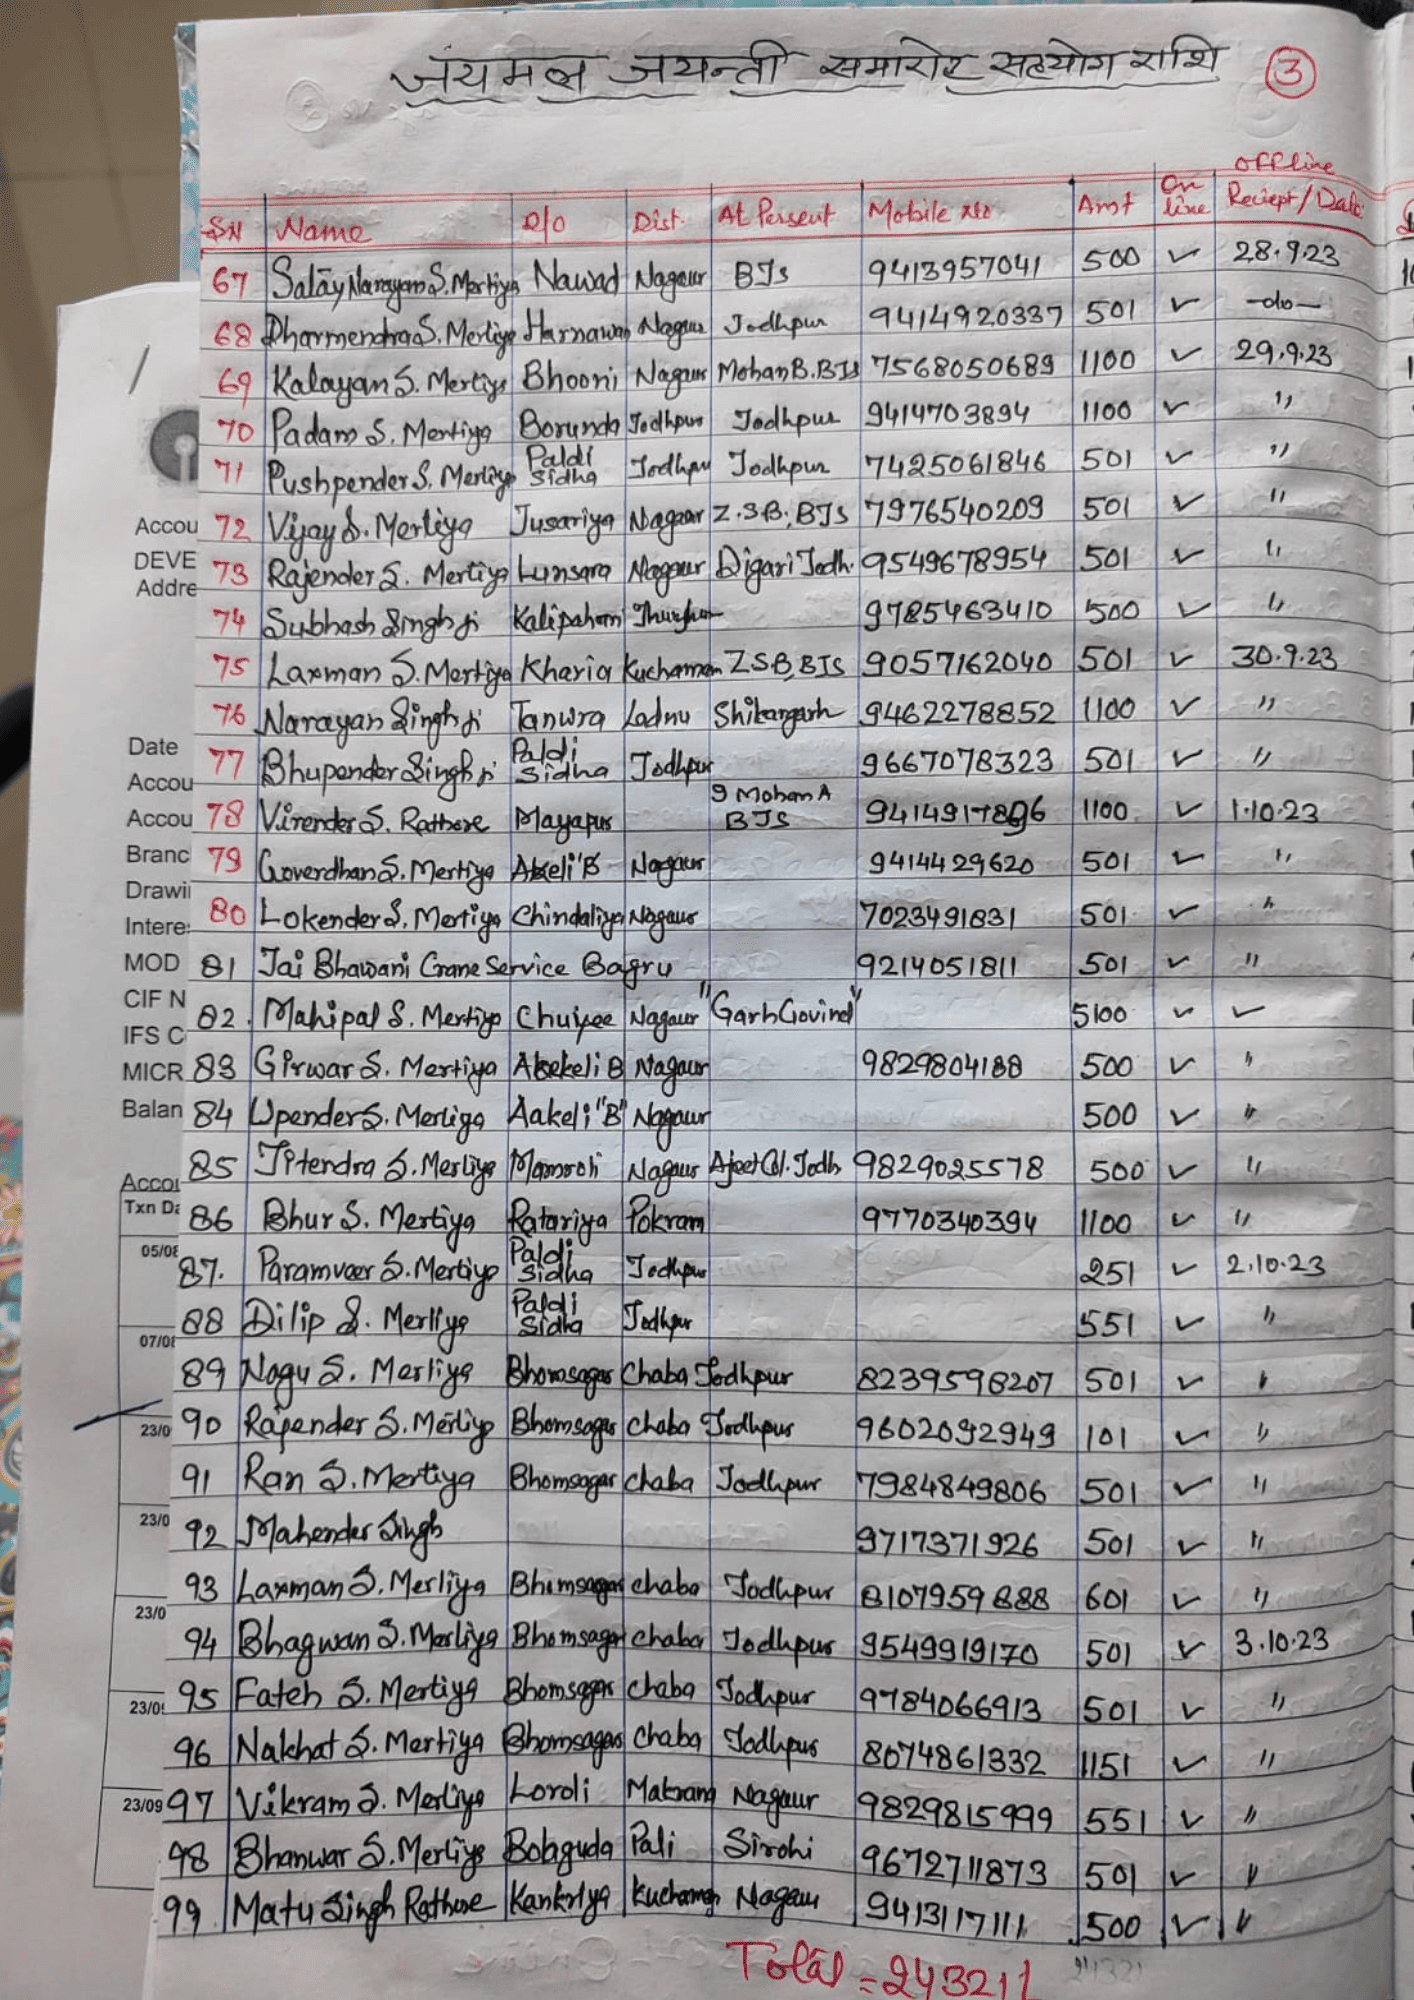 जयमल जयन्ती समारोह सहयोग राशि 3
SN Name R/o Dist. At Persent Mobile No Amt On line Offline Reciept/Date
67 Satay Narayan S. Mertiya Nawad Nagaur BJS 9413957041 500 ✓ 28.9.23
68 Dharmendra S. Mertiya Harnawa Nagaur Jodhpur 9414920337 501 ✓ -do-
69 Kalayan S. Mertiya Bhooni Nagaur Mohan B. BJS 7568050689 1100 ✓ 29.9.23
70 Padam S. Mertiya Borunda Jodhpur Jodhpur 9414703894 1100 ✓ "
71 Pushpender S. Mertiya Paldi Sidha Jodhpur Jodhpur 7425061846 501 ✓ "
Accou 72 Vijay S. Mertiya Jusariya Nagaur Z.S.B., BJS 7976540209 501 ✓ "
DEVE
Addre 73 Rajender S. Mertiya Lunsara Nagaur Digari Jodh. 9549678954 501 ✓ "
74 Subhash Singh ji Kalipahari 9785463410 500 ✓ "
75 Laxman S. Mertiya Kharia Kuchaman ZSB, BJS 9057162040 501 ✓ 30.9.23
76 Narayan Singh ji Tanwra Ladnu Shikargarh 9462278852 1100 ✓ "
Date 77 Bhupender Singh ji Paldi Sidha Jodhpur 9667078323 501 ✓ "
Accou
Accou 78 Virender S. Rathore Mayapur 9 Mohan A BJS 1100 ✓ 1.10.23
Branc 79 Goverdhan S. Mertiya Akeli "B Nagaur 9414429620 501 ✓ "
Drawi
Intere 80 Lokender S. Mertiya Chindaliya Nagaur 7023491831 501 ✓ "
MOD 81 Jai Bhawani Crane Service Bagru 9214051811 501 ✓ "
CIF N
IFS C 82. Mahipal S. Mertiya Nagaur "Garh Govind" 5100 ✓ ✓
MICR 83 Girwar S. Mertiya Akekeli B Nagaur 9829804188 500 ✓ "
Balan 84 Upender S. Mertiya Aakeli "B" Nagaur 500 ✓ "
Accou 85 Jitendra S. Mertiya Mamroli Nagaur Ajeet Col. Jodh 9829025578 500 ✓ "
Txn Da 86 Bhur S. Mertiya Ratariya Pokram 9770340394 1100 ✓ "
05/08 87. Paramveer S. Mertiya Paldi Sidha Jodhpur 251 ✓ 2.10.23
07/08 88 Dilip S. Mertiya Paldi Sidha Jodhpur 551 ✓ "
89 Nagu S. Mertiya Bhomsagar Chaba Jodhpur 8239598207 501 ✓ "
23/0 90 Rajender S. Mertiya Bhomsagar chaba Jodhpur 9602092949 101 ✓ "
91 Ran S. Mertiya Bhomsagar chaba Jodhpur 7984849806 501 ✓ "
23/0 92 Mahender Singh 9717371926 501 ✓ "
93 Laxman S. Mertiya Bhimsagar chaba Jodhpur 8107959888 601 ✓ "
23/0 94 Bhagwan S. Mertiya Bhomsagar chaba Jodhpur 9549919170 501 ✓ 3.10.23
23/09 95 Fateh S. Mertiya Bhomsagar chaba Jodhpur 9784066913 501 ✓ "
96 Nakhat S. Mertiya Bhomsagar Chaba Jodhpur 8074861332 1151 ✓ "
23/09 97 Vikram S. Mertiya Loroli Makrana Nagaur 9829815999 551 ✓ "
98 Bhanwar S. Mertiya Bobaguda Pali Sirohi 9672711873 501 ✓ "
99 Matu Singh Rathore Kankriya Kuchaman Nagaur 9413117111 500 ✓ "
Total = 243211